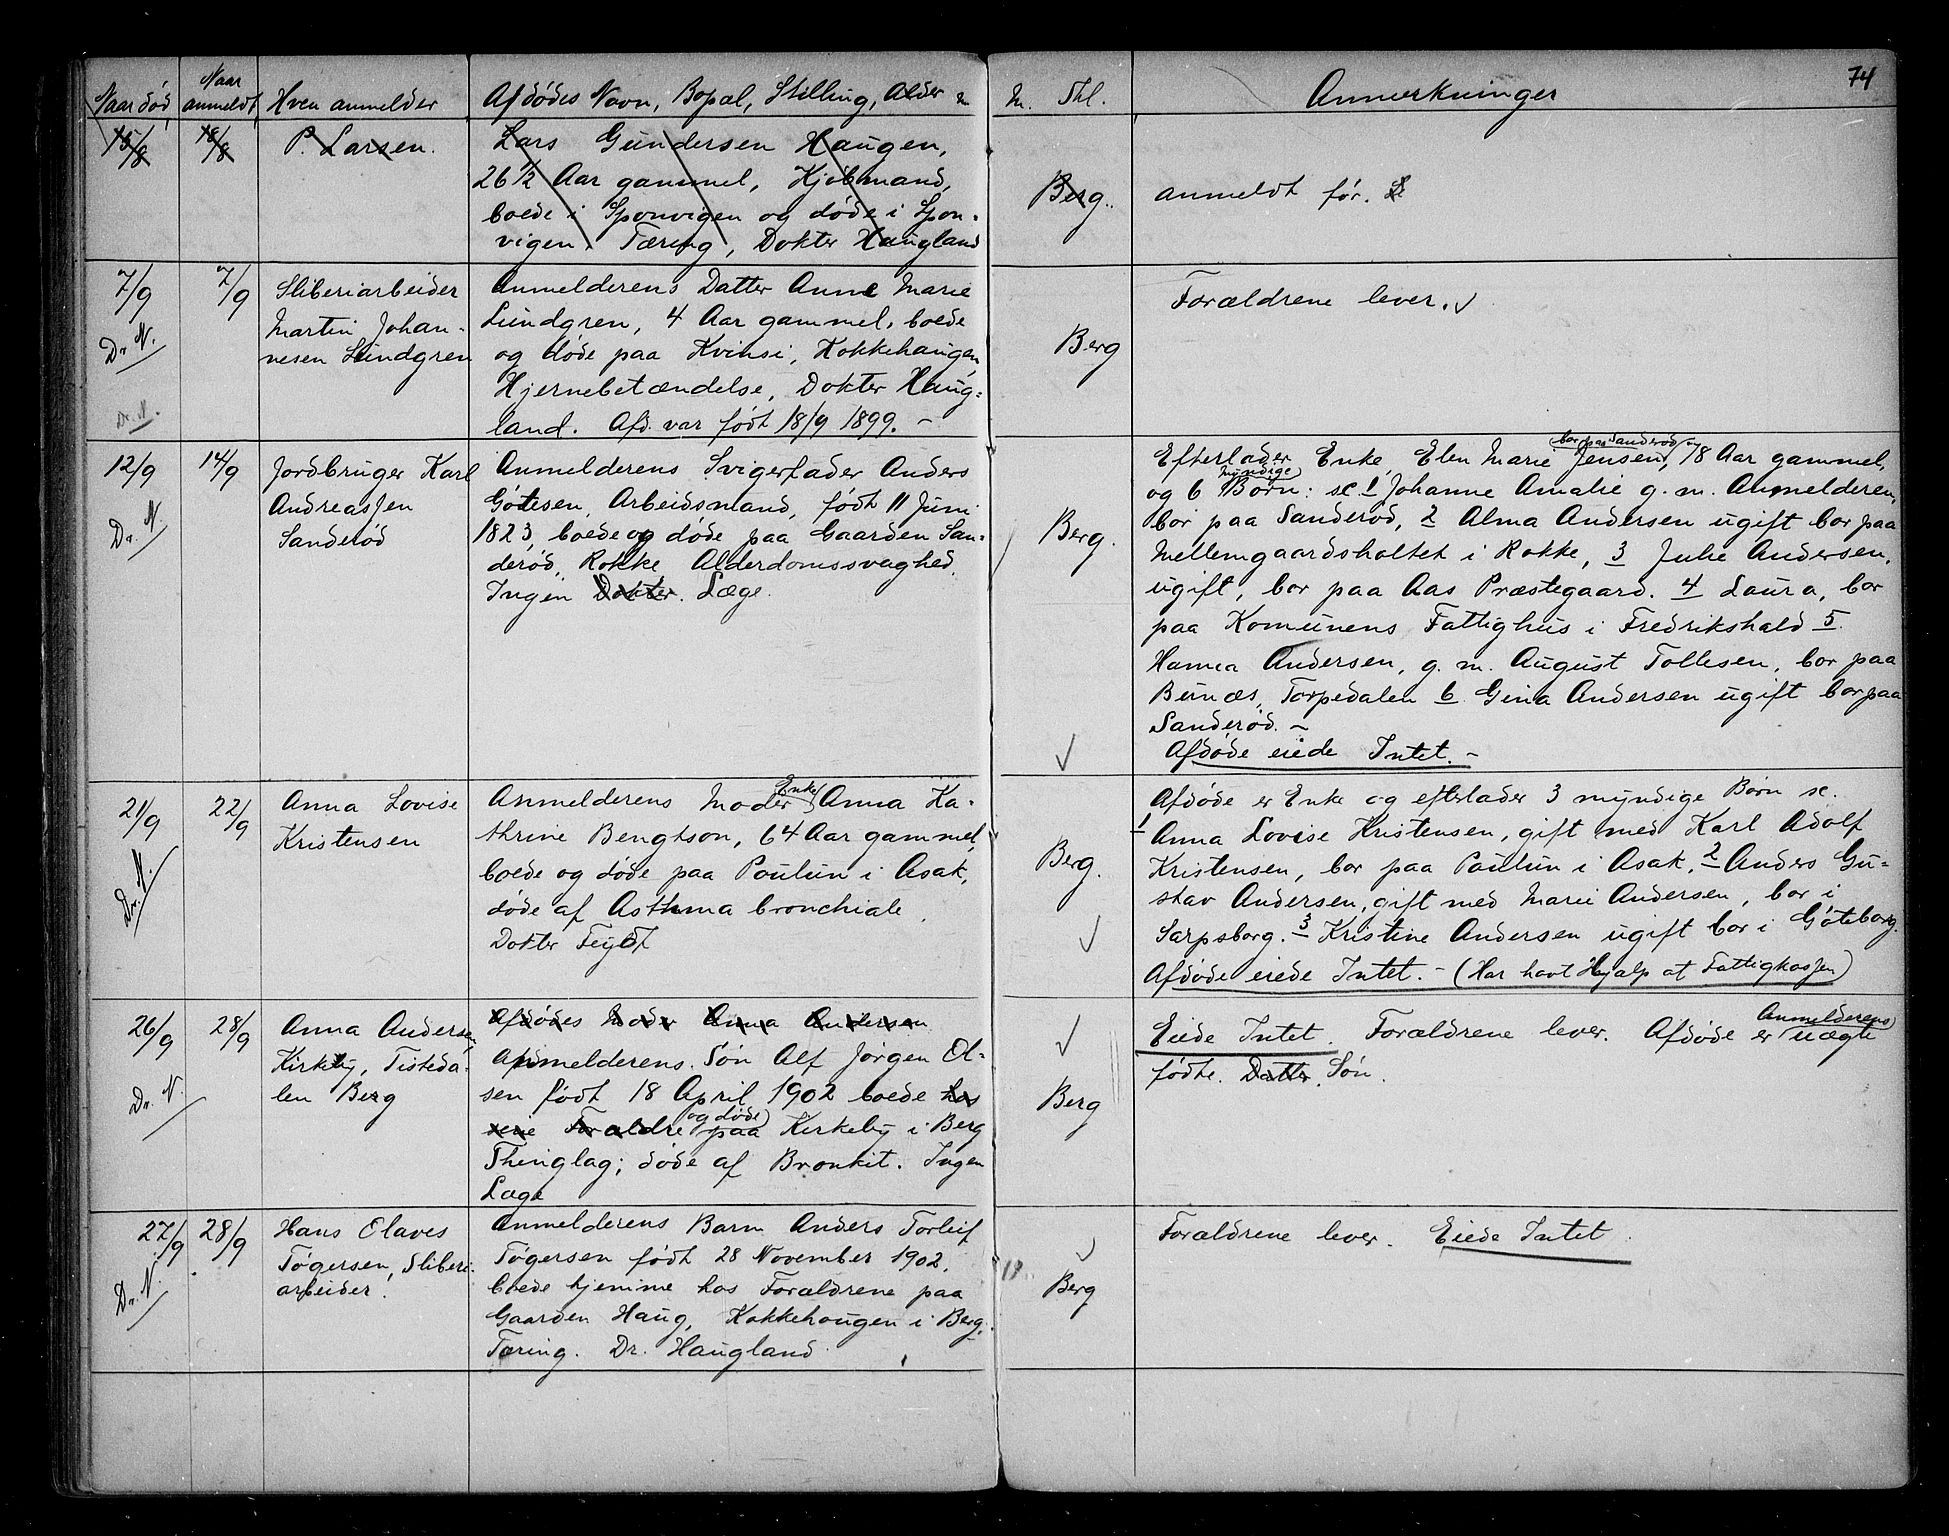 74
Naar død
Naar anmeldt
Hvem anmelder
Afdødes Navn, Bopæl, Stilling, Alder m. m.
Thl.
Anmærkninger
15/8
18/8
P. Larsen.
Lars Gundersen Haugen,
26 1/2 Aar gammel, Kjøbmand,
boede i Sponvigen og døde i Spon-
vigen. Tæring, Dokter Haugland
Berg.
anmeldt før.
7/9
Dr. N.
Dr. N.
7/9
Sliberiarbeider
Martin Johan-
nesen Lundgren
Anmelderens Datter Anne Marie
Lundgren, 4 Aar gammel, boede
og døde paa Kvinsi, Kokkehaugen,
Hjernebetændelse, Dokter Haug-
land. Afd. var født 18/9 1899. –
Berg
Forældrene lever.
12/9
Dr. N
14/9
Jordbruger Karl
Andreassen
Sanderød
Anmelderens Svigerfader Anders
Götesen, Arbeidsmand, født 11 Juni
1823, boede og døde paa Gaarden San-
derød, Rokke Alderdomssvaghed.
Ingen Dokter. Læge.
Berg.
bor paa Sanderød
Efterlader Enke, Elen Marie Jensen, 78 Aar gammel,
myndige
og 6 Børn: sc. 1 Johanne Amalie g. m. Anmelderen,
bor paa Sanderød, 2 Alma Andersen ugift bor paa
Mellemgaardsholtet i Rokke, 3 Julie Andersen,
ugift, bor paa Aas Præstegaard. 4 Laura, bor
paa Komunens Fattighus i Fredrikshald 5.
Hanna Andersen, g. m. August Tollesen, bor paa
Bunæs, Torpedalen 6 Gina Andersen ugift bor paa
Sanderød. –
Afdøde eiede Intet. –
21/9
Dr. N.
22/9
Anna Lovise
Kristensen
Enke
Anmelderens Moder Anna Ka-
thrine Bengtson, 64 Aar gammel,
boede og døde paa Poulun i Asak,
døde af Asthma bronchiale.
Dokter Feydt
Berg.
Afdøde er Enke og efterlader 3 myndige Børn sc.
1 Anna Lovise Kristensen, gift med Karl Adolf
Kristensen, bor paa Poulun i Asak. 2 Anders Gu-
stav Andersen, gift med Marie Andersen, bor i
Sarpsborg. 3 Kristine Andersen ugift bor i Göteborg.
Afdøde eiede Intet. – (Har havt Hjælp af Fattigkassen)
26/9
Dr. N.
28/9
Anna Andersen,
Kirkeby, Tisteda-
len Berg
Afdødes Moder Anna Andersen
Anmelderens Søn Alf Jørgen Ol-
sen født 18 April 1902 boede hos
og døde
sine Forældre paa Kirkeby i Berg
Thinglag; døde af Bronkit. Ingen
Læge
Berg
Anmelderens
Eiede Intet. Forældrene lever. Afdøde er uægte
fødte. Datter. Søn.
27/9
Dr. N.
28/9
Hans Olaves
Tøgersen, Sliberi-
arbeider.
Anmelderens Barn Anders Torleif
Tøgersen født 28 November 1902.
boede hjemme hos Forældrene paa
Gaarden Haug, Kokkehougen i Berg.
Tæring. Dr. Haugland.
Berg
Forældrene lever. Eiede Intet.